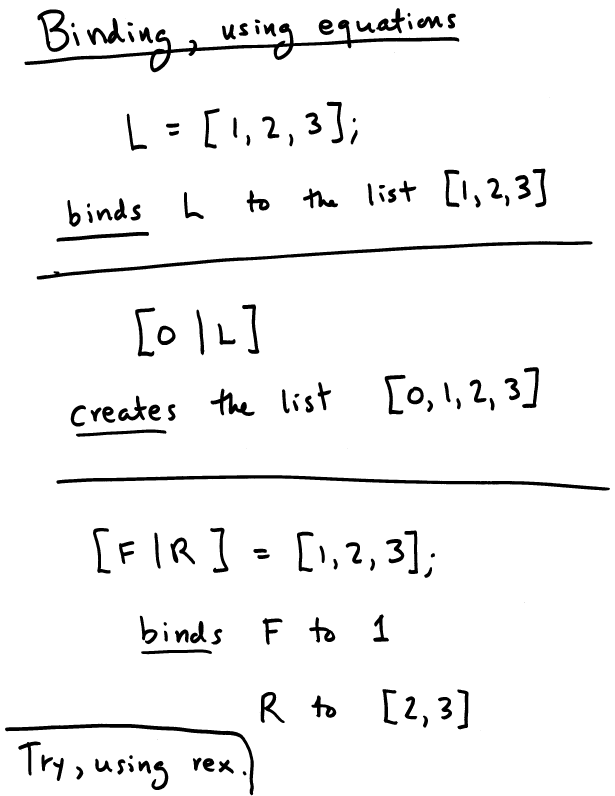 Binding, using equations
L = [1, 2, 3];
binds L to the list [1, 2, 3]
[0 | L]
creates the list [0, 1, 2, 3]
[F | R] = [1, 2, 3];
binds F to 1
R to [2, 3]
Try, using rex.